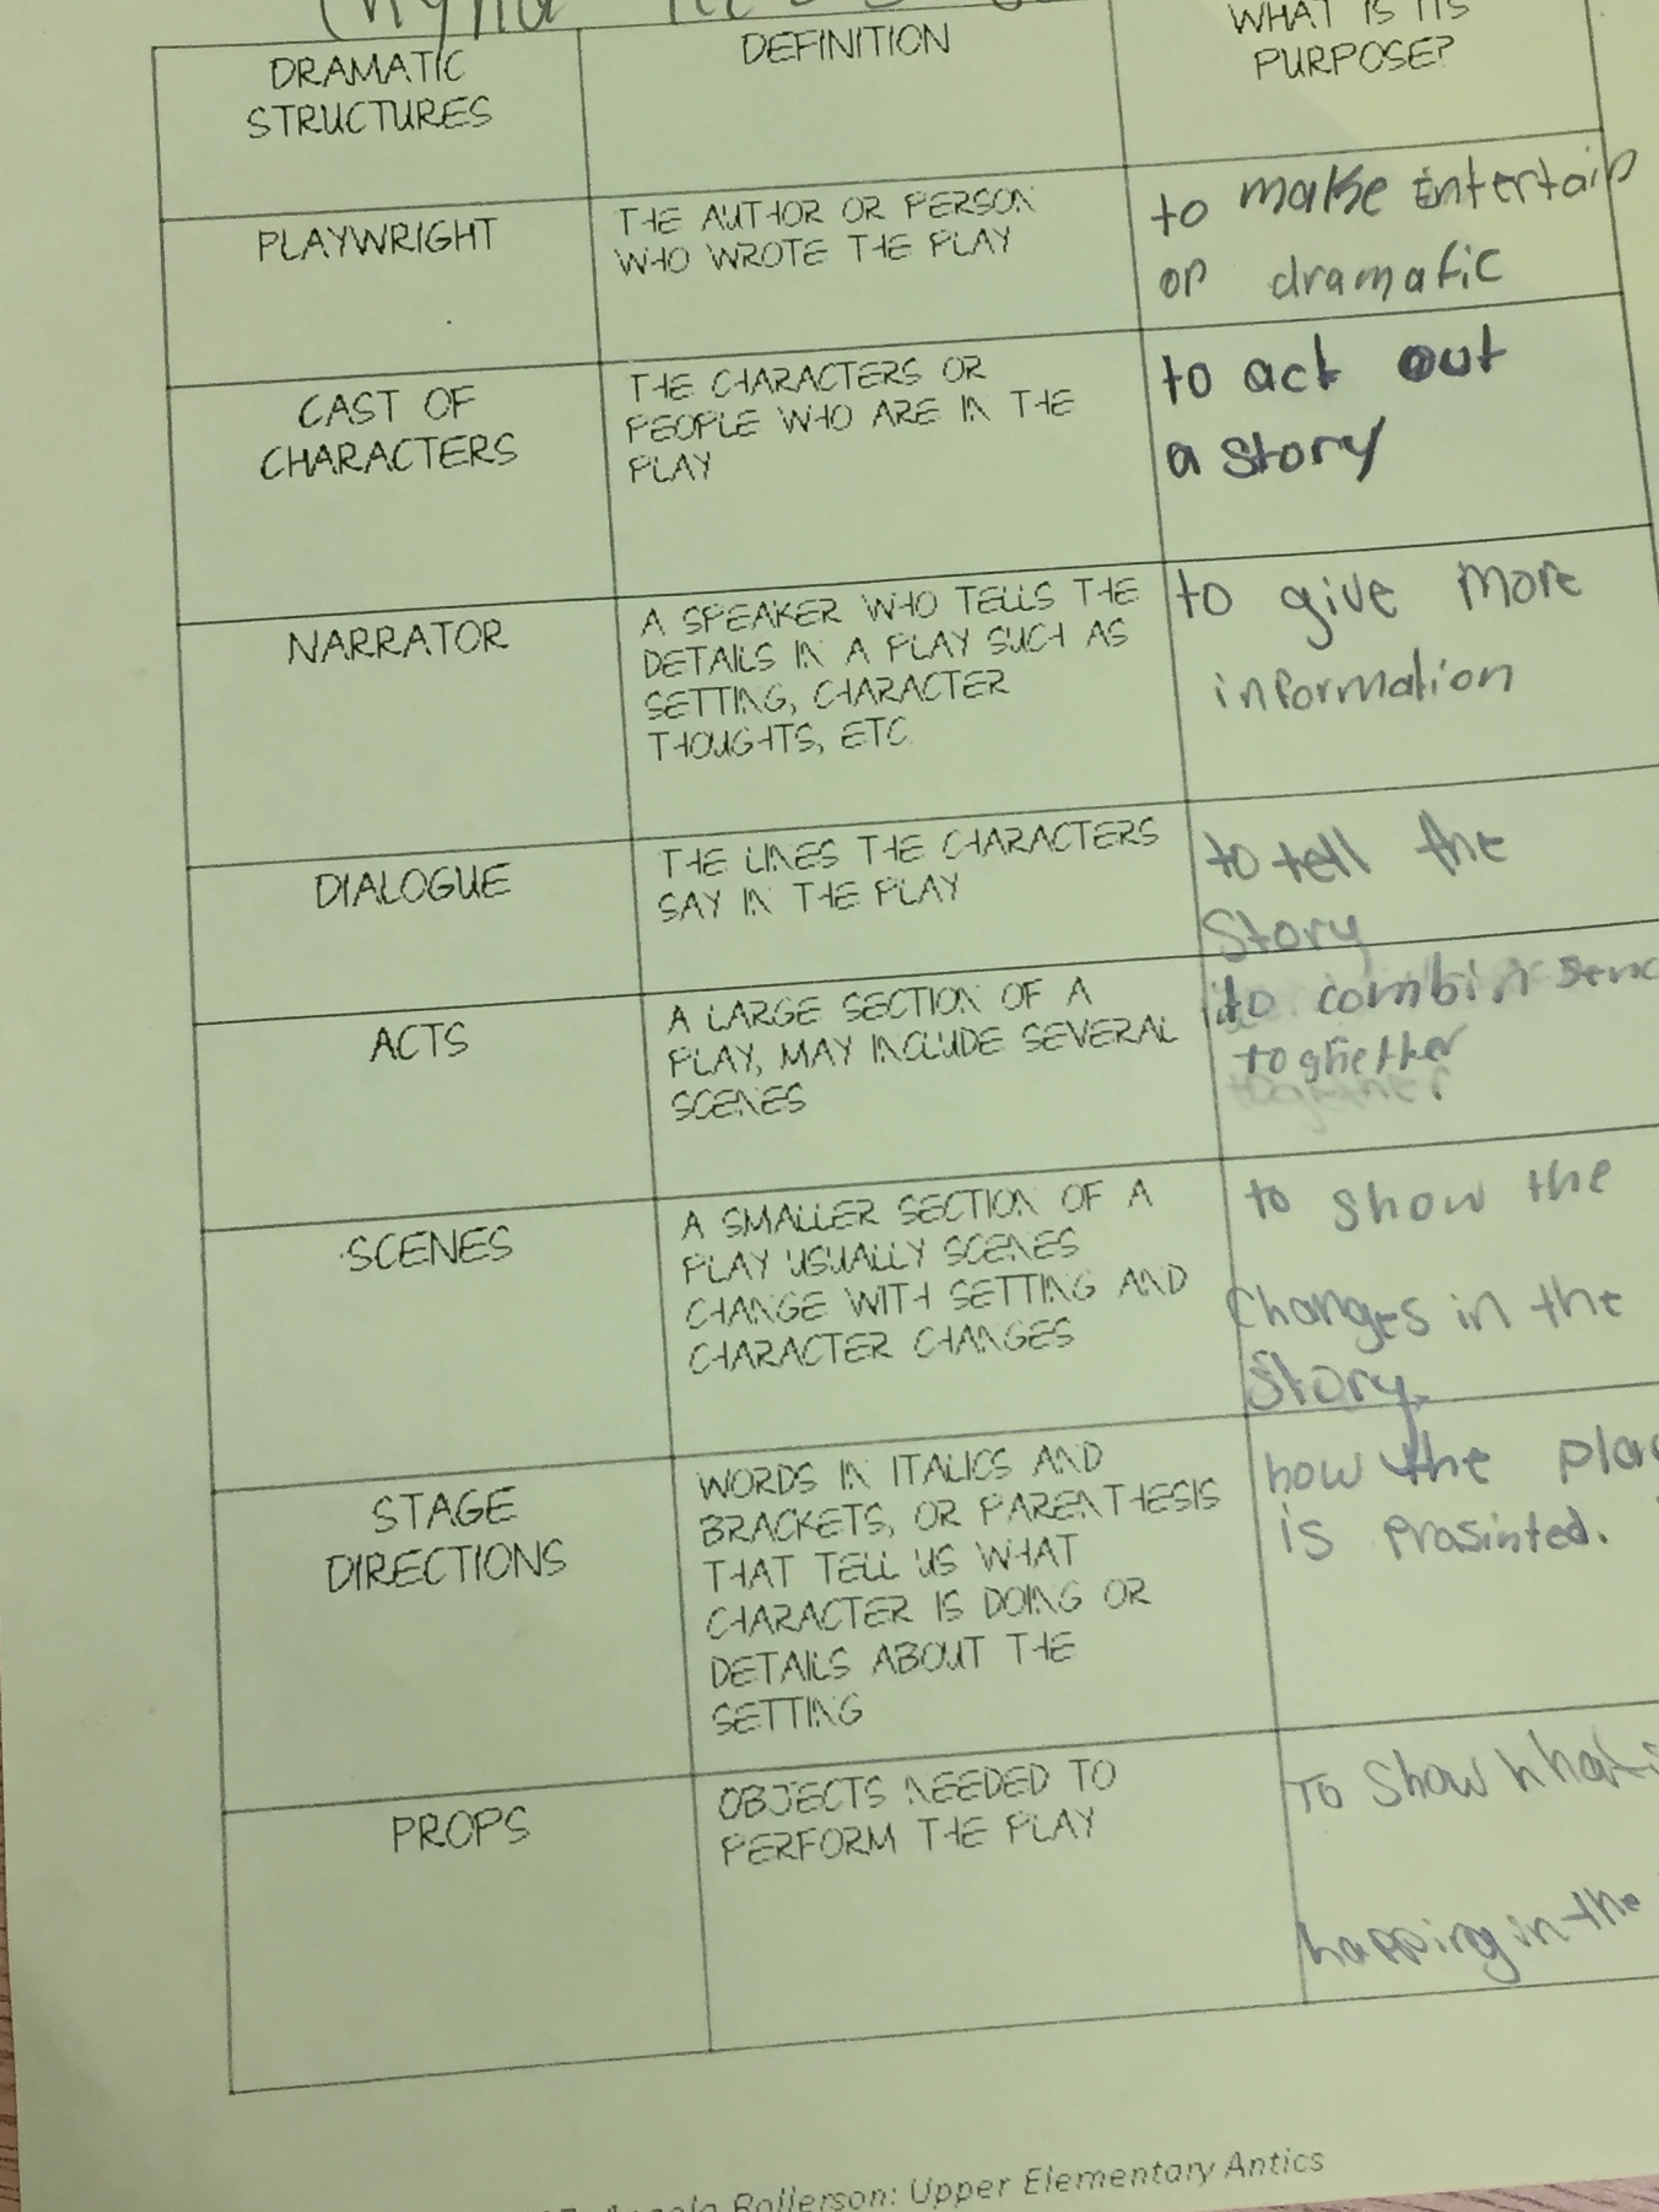 WHAT IS ITS
PURPOSE?
DRAMATIC
STRUCTURES
DEFINITION
PLAYWRIGHT
THE AUTHOR OR PERSON
WHO WROTE THE PLAY
to make Entertain
or dramatic
CAST OF
CHARACTERS
THE CHARACTERS OR
PEOPLE WHO ARE IN THE
PLAY
to act out
a story
NARRATOR
A SPEAKER WHO TELLS THE
DETAILS IN A PLAY SUCH AS
SETTING, CHARACTER
THOUGHTS, ETC.
to give more
information
DIALOGUE
THE LINES THE CHARACTERS
SAY IN THE PLAY
to tell the
Story
ACTS
A LARGE SECTION OF A
PLAY, MAY INCLUDE SEVERAL
SCENES
to combin
toghether
SCENES
A SMALLER SECTION OF A
PLAY USUALLY SCENES
CHANGE WITH SETTING AND
CHARACTER CHANGES
to show the
Changes in the
Story.
STAGE
DIRECTIONS
WORDS IN ITALICS AND
BRACKETS, OR PARENTHESIS
THAT TELL US WHAT
CHARACTER IS DOING OR
DETAILS ABOUT THE
SETTING
how the
is Prasinted.
PROPS
OBJECTS NEEDED TO
PERFORM THE PLAY
To Show
happing in the
Rollerson: Upper Elementary Antics